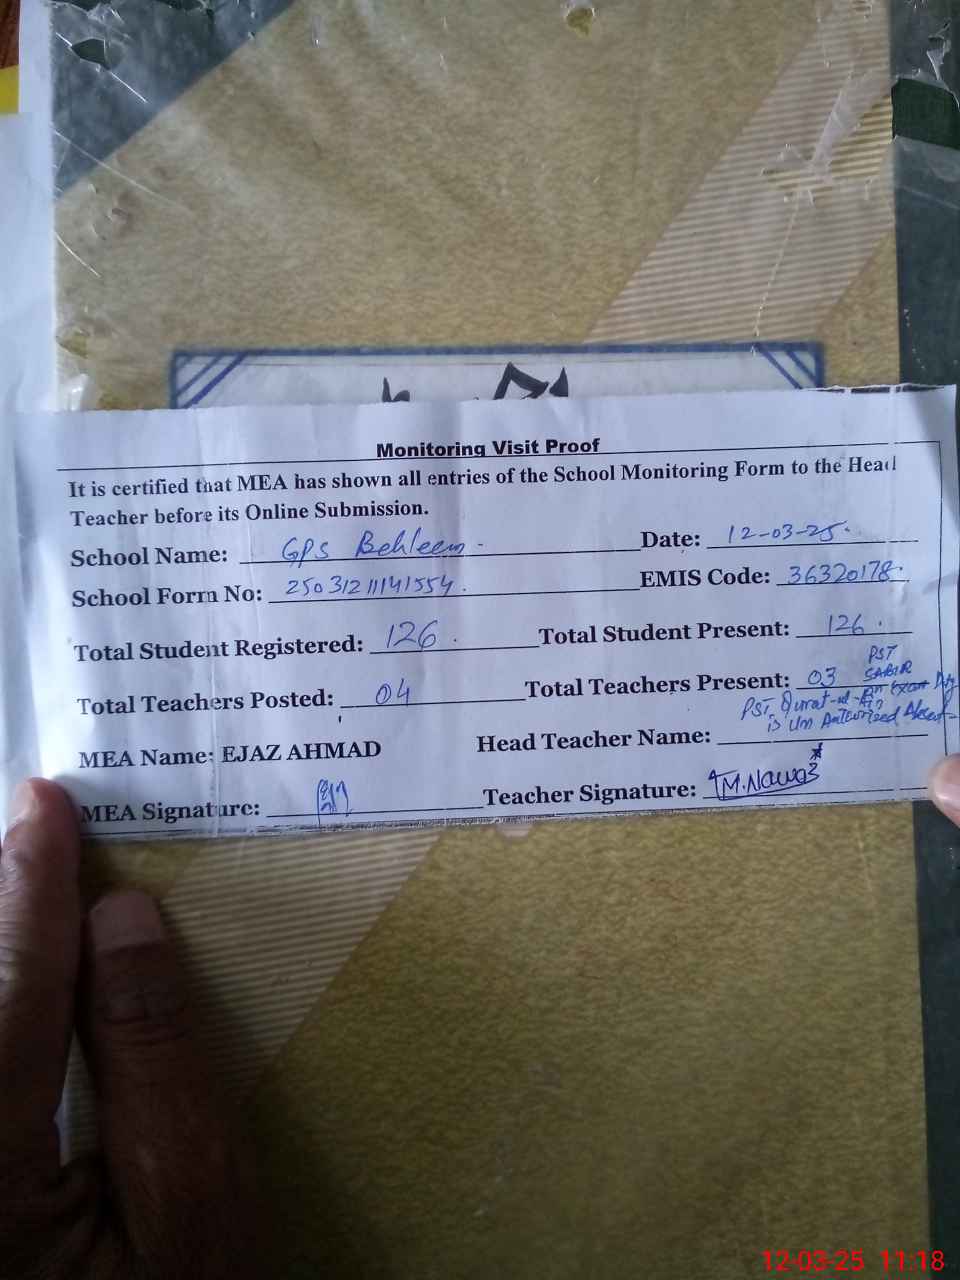 Monitoring Visit Proof
It is certified that MEA has shown all entries of the School Monitoring Form to the Head
Teacher before its Online Submission.
School Name: GPS Behleem - Date: 12-03-25.
School Form No: 25031211141554. EMIS Code: 36320178.
Total Student Registered: 126. Total Student Present: 126.
Total Teachers Posted: 04 Total Teachers Present: 03 PST SABIR on Exam Duty
PST Qurat-ul-Ain is Un Authorized Absent
MEA Name: EJAZ AHMAD Head Teacher Name:
MEA Signature: Teacher Signature: M.Nawaz
12-03-25 11:18